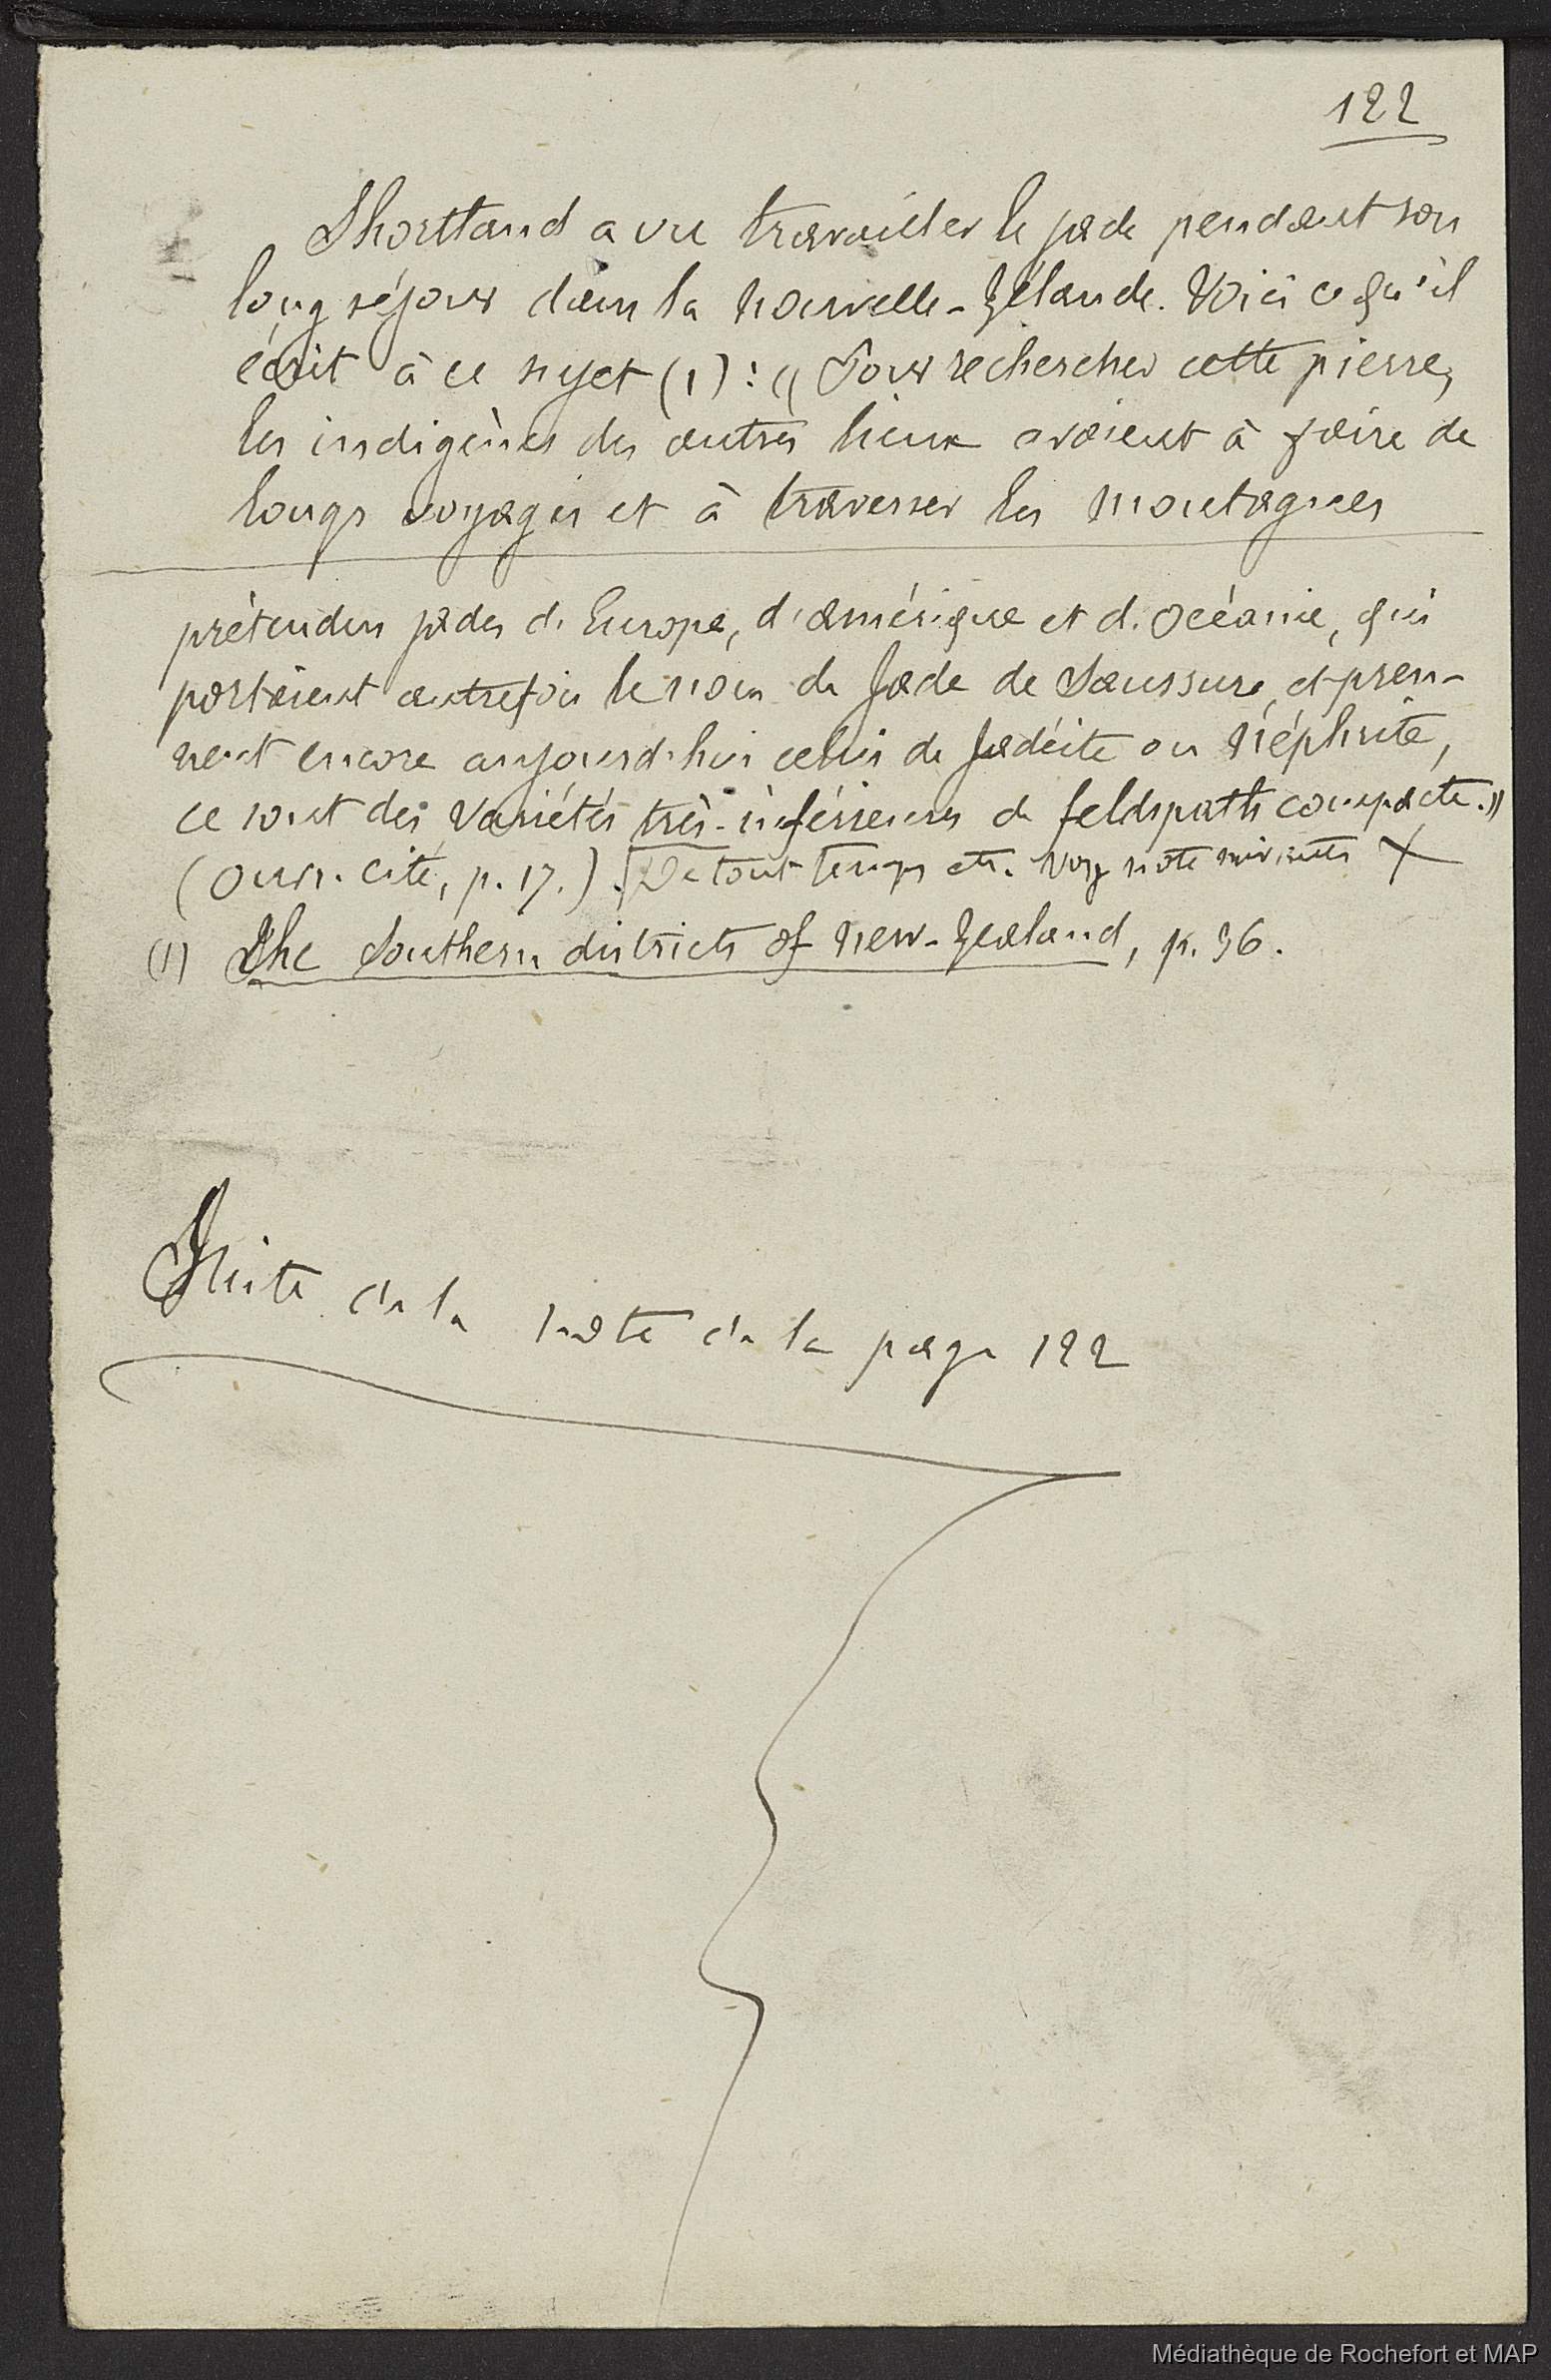 122
Shortland a vu travailler le jade pendant son
long séjour dans la Nouvelle-Zélande. Voici ce qu'il
écrit à ce sujet (1) : « Pour rechercher cette pierre,
les indigènes des autres lieux avaient à faire de
longs voyages et à traverser les montagnes
prétendus jades d'Europe, d'Amérique et d'Océanie, qui
portaient autrefois le nom de Jade de Saussure, et pren-
nent encore aujourd'hui celui de Jadéite ou Néphrite,
ce sont des variétés très-inférieures de feldspath compacte. »
(Ouvr. cité, p. 17.) De tout temps etc. Voy note suivante X
(1) The Southern districts of New-Zealand, p. 36.
Suite de la note de la page 122
Médiathèque de Rochefort et MAP